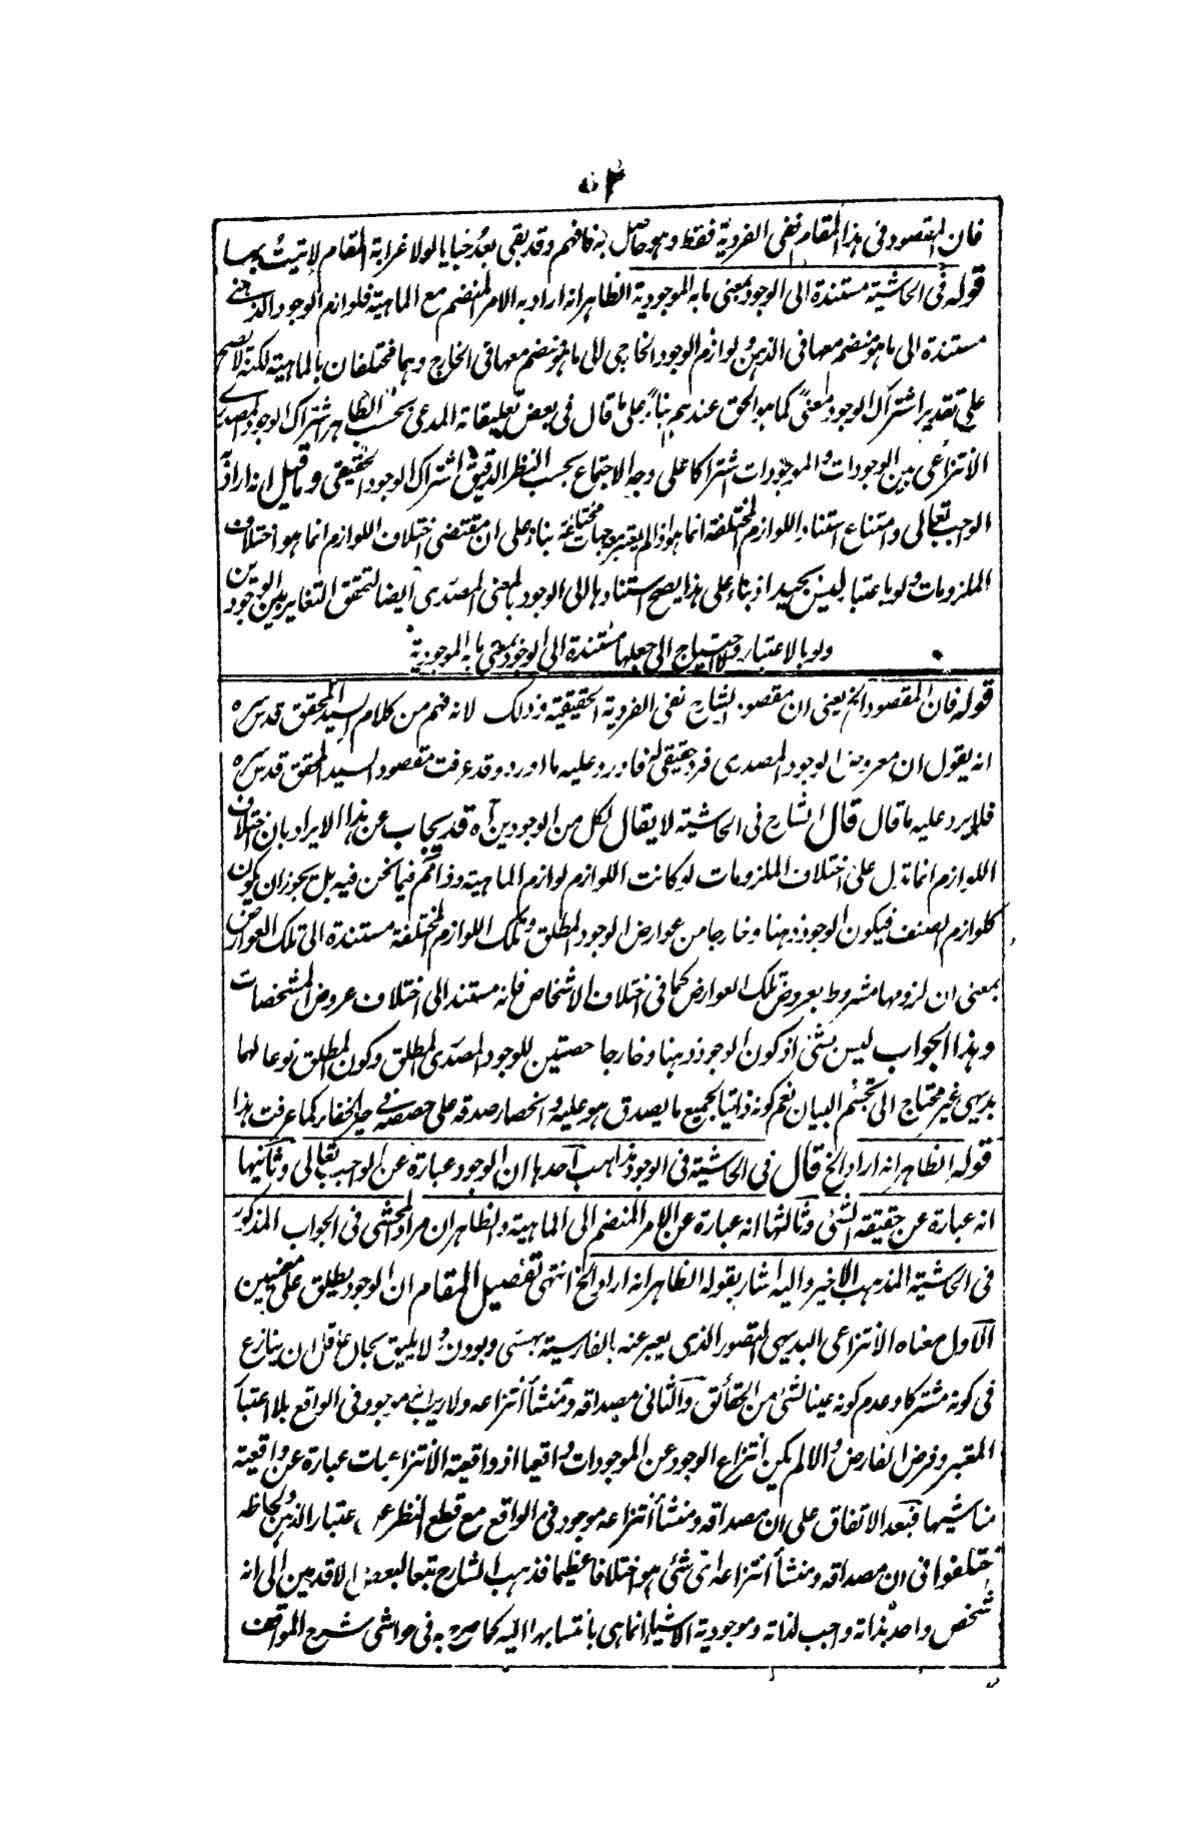 ٥٢
فان المقصود فى هذا المقام نفى الفردية فقط وهو حاصل به فافهم وقد بقى بعد خبايا لولا غرابة المقام لاتيت بها
قوله فى الحاشية مستندة الى الوجود بمعنى ما به الموجودية الظاهر انه اراد به الامر المنضم مع الماهية فلوازم الوجود الذهنى
مستندة الى ما هو منضم معها فى الذهن ولوازم الوجود الخارجى الى ما هو منضم معها فى الخارج وهما مختلفان بالماهية لكنه لا يصح
على تقدير اشتراك الوجود معنى كما هو الحق عندهم بناء على ما قال فى بعض تعليقاته المدعى بحسب الظاهر اشتراك الوجود المصدرى
الانتزاعى بين الوجودات والموجودات اشتراكا على وجه الاجتماع بحسب النظر الدقيق اشتراك الوجود الحقيقى وما قيل انه اراد به
الواجب تعالى وامتناع استناد اللوازم المختلفة انما هو اذا لم يعتبر جهات مختلفة بناء على ان مقتضى اختلاف اللوازم انما هو اختلاف
الملزومات ولو باعتبار ليس بجيد اذ بناء على هذا يصح استنادها الى الوجود بالمعنى المصدرى ايضا لتحقق التغاير بين الوجودين
ولو بالاعتبار ولا احتياج الى جعلها مستندة الى الوجود بمعنى ما به الموجودية
قوله فان المقصود الخ يعنى ان مقصود الشارح نفى الفردية الحقيقية وذلك لانه فهم من كلام السيد المحقق قدس سره
انه يقول ان معروض الوجود المصدرى فرد حقيقى له فاورد عليه ما اورد وقد عرفت مقصود السيد المحقق قدس سره
فلا يرد عليه ما قال قال الشارح فى الحاشية لا يقال لكل من الوجودين آه قد يجاب عن هذا الايراد بان اختلاف
اللوازم انما تدل على اختلاف الملزومات لو كانت اللوازم لوازم الماهية وذا فيما نحن فيه بل يجوز ان يكون
كلوازم الصنف فيكون الوجود ذهنا وخارجا من عوارض الوجود المطلق وتلك اللوازم المختلفة مستندة الى تلك العوارض
بمعنى ان لزومها مشروط بعروض تلك العوارض كما فى اختلاف الاشخاص فانه مستند الى اختلاف عروض المشخصات
وهذا الجواب ليس بشئ اذ كون الوجود ذهنا وخارجا حصتين للوجود المصدرى المطلق وكون المطلق نوعا لهما
بديهى غير محتاج الى تجشم البيان نعم كونه ذاتيا لجميع ما يصدق هو عليه وانحصار صدقه على حصصه فى حيز الخفاء كما عرفت هذا
قوله الظاهر انه اراد الخ قال فى الحاشية فى الوجود مذاهب احدها ان الوجود عبارة عن الواجب تعالى وثانيها
انه عبارة عن حقيقة الشئ وثالثها انه عبارة عن الامر المنضم الى الماهية والظاهر ان مراد المحشى فى الجواب المذكور
فى الحاشية المذهب الاخير واليه اشار بقوله الظاهر انه اراد الخ انتهى تفصيل المقام ان الوجود يطلق على معنيين
الاول معناه الانتزاعى البديهى التصور الذى يعبر عنه بالفارسية بهستى وبودن ولا يليق بحال عاقل ان ينازع
فى كونه مشتركا وعدم كونه عينا لشئ من الحقائق والثانى مصداقه ومنشأ انتزاعه ولا ريب انه موجود فى الواقع بلا اعتبار
المعتبر وفرض الفارض والا لم يكن انتزاع الوجود عن الموجودات واقعيا اذ واقعية الانتزاعيات عبارة عن واقعية
مناشيها فبعد الاتفاق على ان مصداقه ومنشأ انتزاعه موجود فى الواقع مع قطع النظر عن اعتبار الذهن ولحاظه
اختلفوا فى ان مصداقه ومنشأ انتزاعه اى شئ هو اختلافا عظيما فذهب الشارح تبعا لبعض الاقدمين الى انه
شخص واحد بذاته واجب لذاته وموجودية الاشياء انما هى بانتسابها اليه كما صرح به فى حواشى شرح المواقف